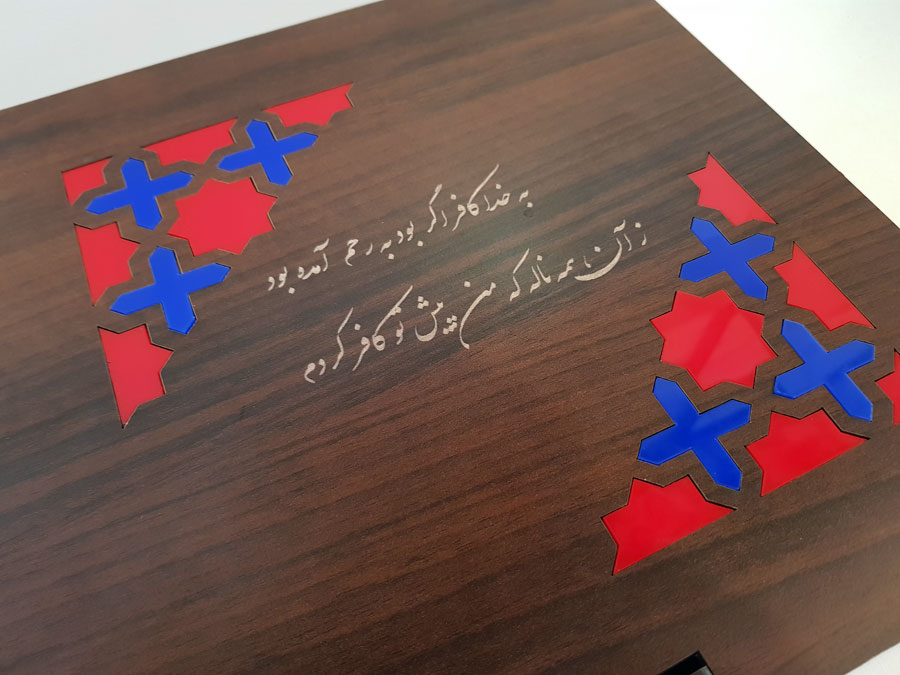 به خدا کافر اگر بود به رحم آمده بود
ز آن همه ناله که من پیش تو کافر کردم